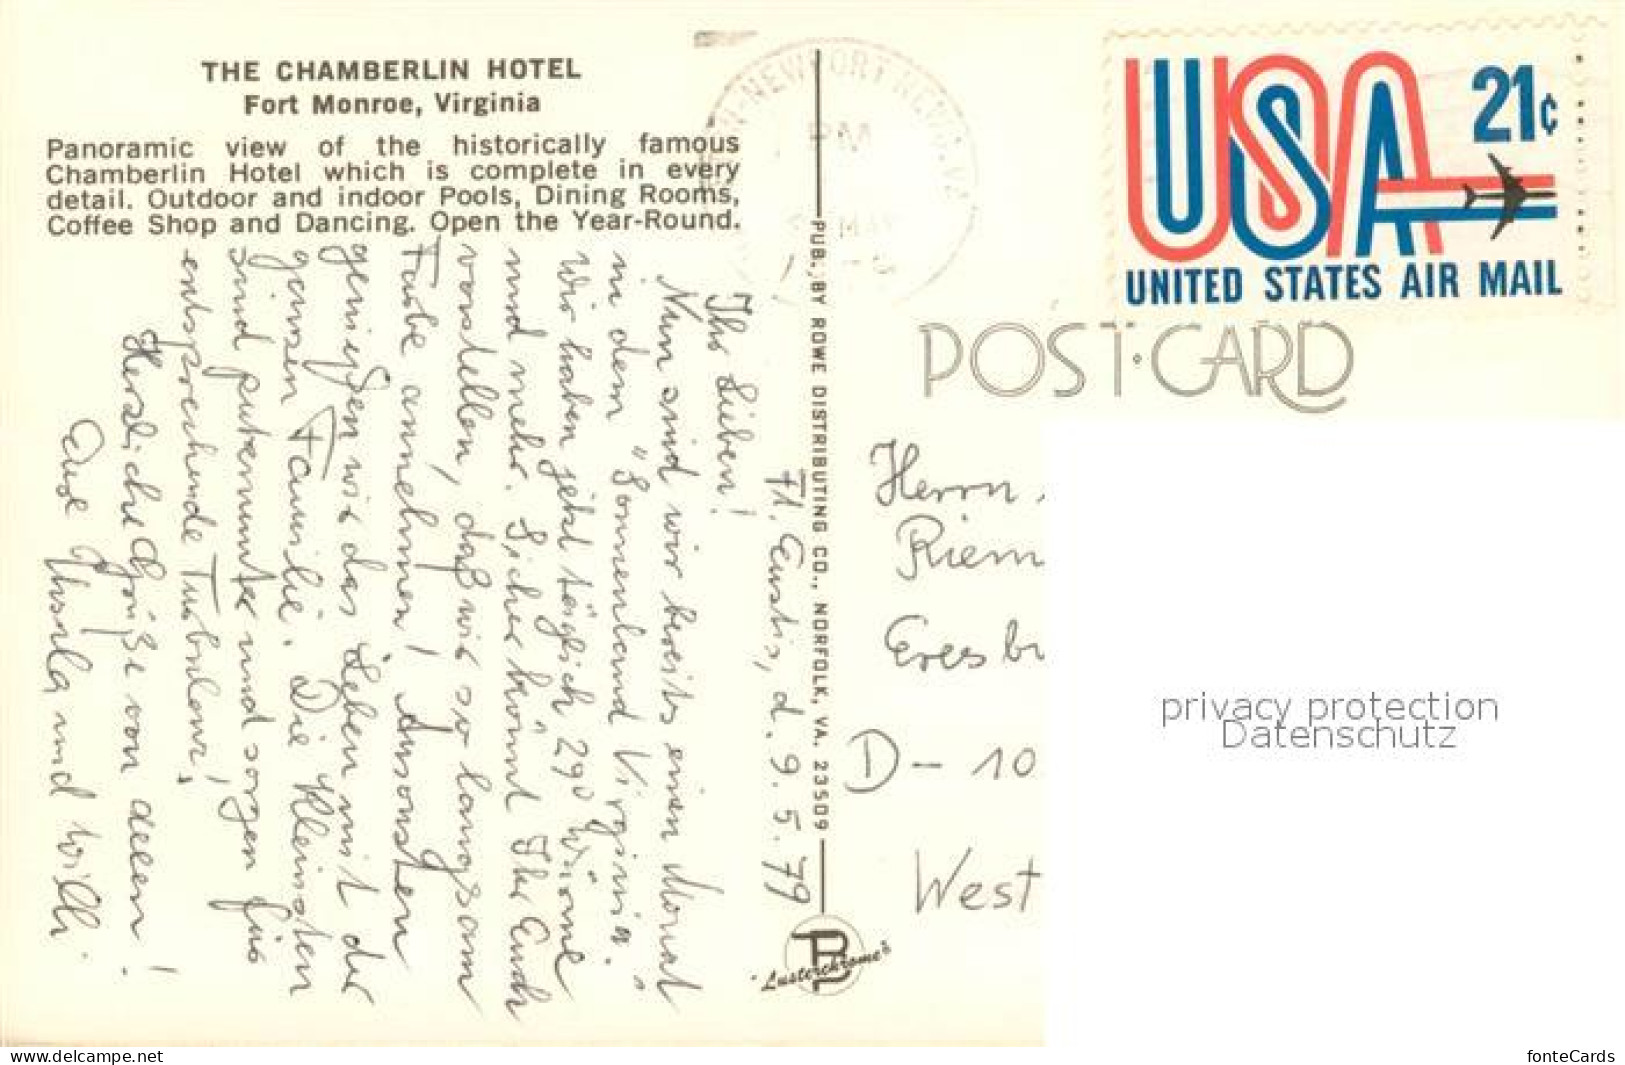 THE CHAMBERLIN HOTEL
Fort Monroe, Virginia
Panoramic view of the historically famous
Chamberlin Hotel which is complete in every
detail. Outdoor and indoor Pools, Dining Rooms,
Coffee Shop and Dancing. Open the Year-Round.
Ft. Eustis, d. 9.5.79
Ihr Lieben!
Nun sind wir bereits einen Monat
in dem "Sonnenland Virginia".
Wir haben jetzt täglich 29° Wärme
und mehr. Sicher könnt Ihr Euch
vorstellen, daß wir so langsam
Farbe annehmen! Ansonsten
genießen wir das Leben mit der
ganzen Familie. Die Kleinsten
sind putzmunter und sorgen für
entsprechende Turbulenz!
Herzliche Grüße von allen!
Eure Ursula und Willi.
PUB. BY ROWE DISTRIBUTING CO., NORFOLK, VA. 23509
"Lusterchrome"
NEWPORT NEWS, VA
PM
MAY
USA
21¢
UNITED STATES AIR MAIL
POST CARD
Herrn
Riem
Eresbu
D - 10
West
privacy protection
Datenschutz
www.delcampe.net
fonteCards